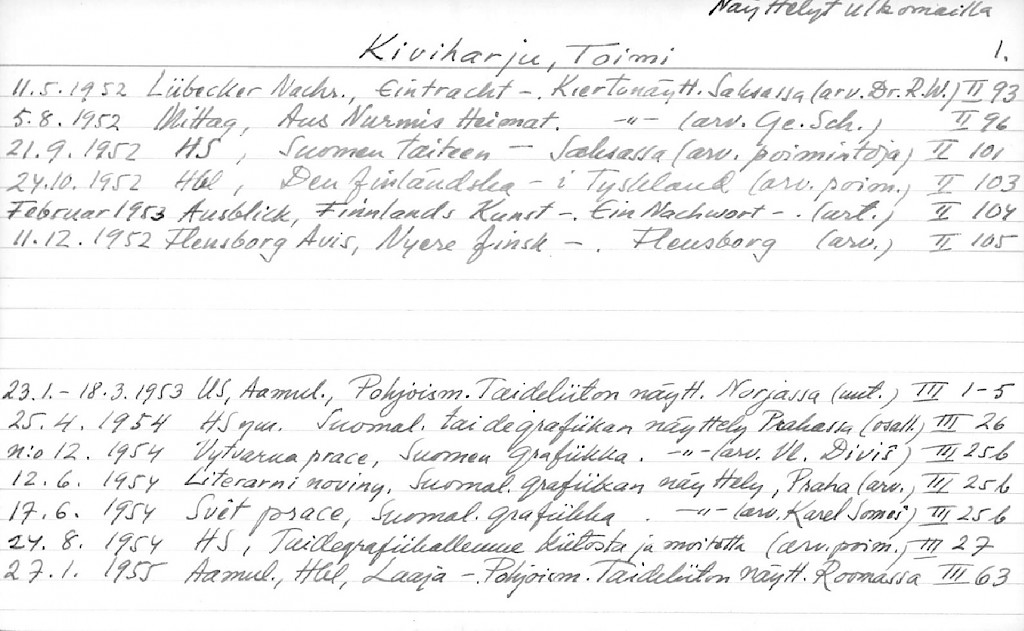 Näyttelyt ulkomailla
Kiviharju, Toimi 1.
11.5.1952 Lübecker Nachr., Eintracht -. Kiertonäytt. Saksassa (arv. Dr. R.W.) II 93
5.8.1952 Mittag, Aus Nurmis Heimat. -"- (arv. Ge. Sch.) II 96
21.9.1952 HS, Suomen taiteen - Saksassa (arv. poimintoja) II 101
24.10.1952 Hbl, Den finländska - i Tyskland (arv. poim.) II 103
Februar 1953 Ausblick, Finnlands Kunst -. Ein Nachwort -. (art.) II 104
11.12.1952 Flensborg Avis, Nyere finsk -. Flensborg (arv.) II 105
23.1.-18.3.1953 US, Aamul., Pohjoism. Taideliiton näytt. Norjassa (uut.) III 1-5
25.4.1954 HS ym. Suomal. taidegrafiikan näyttely Prahassa (osall.) III 26
n:o 12. 1954 Vytvarna prace, Suomen grafiikka. -"- (arv. Vl. Diviš) III 25b
12.6.1954 Literarni noviny, Suomal. grafiikan näyttely, Praha (arv.) III 25b
17.6.1954 Svět prace, Suomal. grafiikka. -"- (arv. Karel Šomoš) III 25b
24.8.1954 HS, Taidegrafiikallemme kiitosta ja moitetta (arv. poim.) III 27
27.1.1955 Aamul., Hbl, Laaja - Pohjoism. Taideliiton näytt. Roomassa III 63